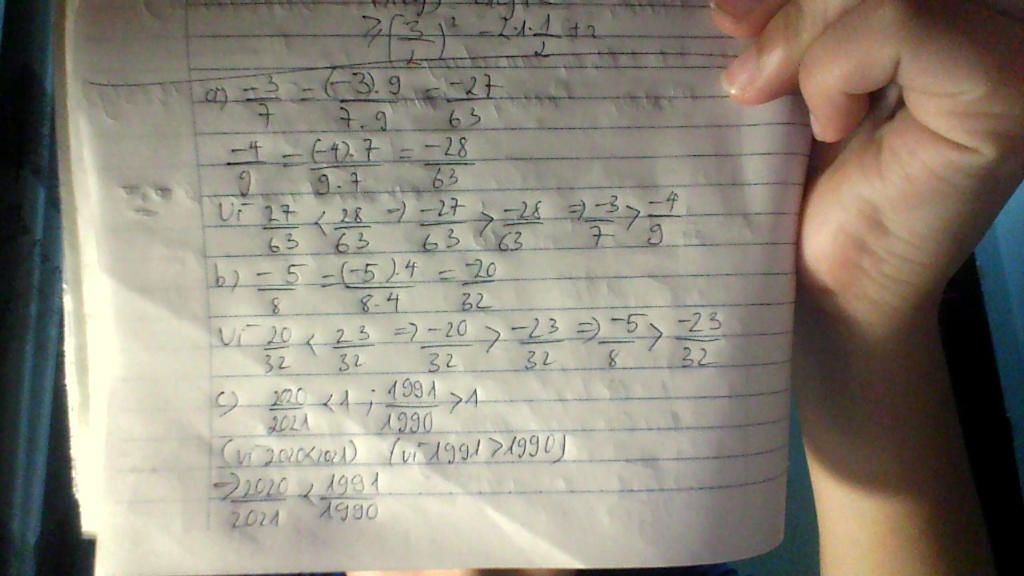 ≥ (3/2)² - 2.1.1/2 + 2
a) -3/7 = (-3).9/7.9 = -27/63
-4/9 = (-4).7/9.7 = -28/63
Vì 27/63 < 28/63 => -27/63 > -28/63 => -3/7 > -4/9
b) -5/8 = (-5).4/8.4 = -20/32
Vì 20/32 < 23/32 => -20/32 > -23/32 => -5/8 > -23/32
c) 2020/2021 < 1 ; 1991/1990 > 1
(vì 2020<2021) (vì 1991>1990)
=> 2020/2021 < 1991/1990